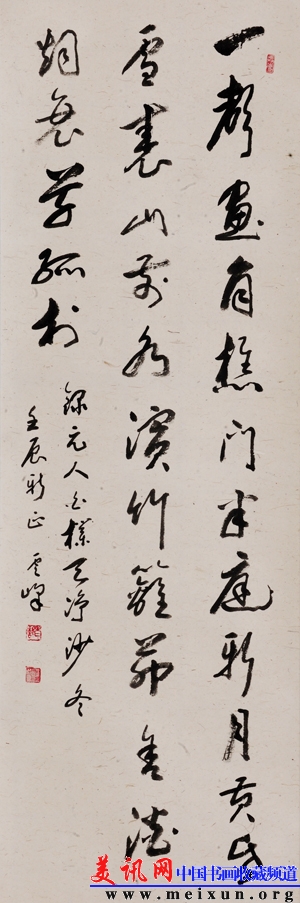 一聲畫角樵門半庭新月黃昏
雪裏山前水濱竹籬茅舍淡
烟衰草孤村
錄元人白樸天净沙冬
壬辰新正 雲峰
美讯网 中国书画收藏频道
www.meixun.org